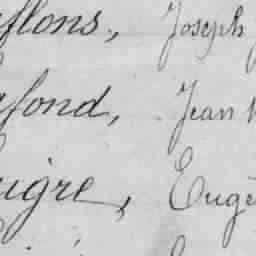 flons, Joseph
fond, Jean
igre, Eugè